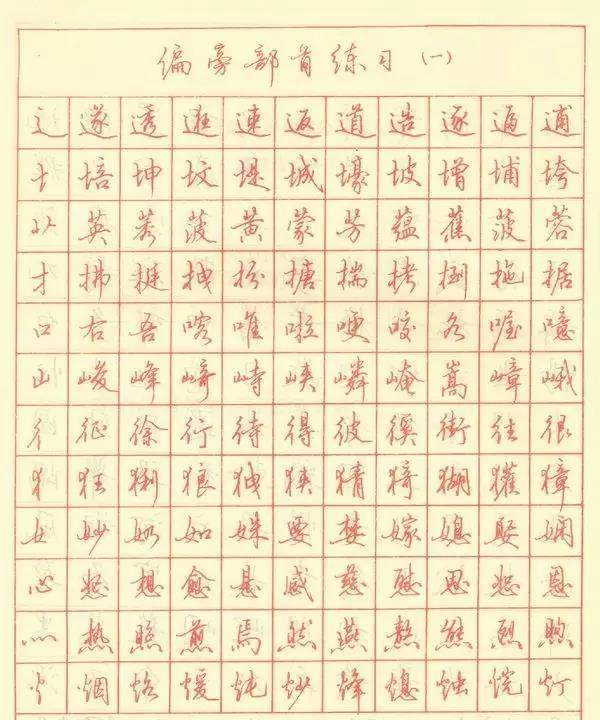 偏旁部首练习(一)
辶遂透逛速返道造逐逼逋
土培坤坟堤城壕坡增埔垮
艹英若菠黄蒙芳蕴蕉菠蓉
扌拂挺拽扮搪揣拷捌拖据
口右吾喀唯啦哽咬名喔噫
山峻峰崎峙峡嶙崦嵩嶂峨
彳征徐行待得彼徯街往很
犭狂猁狼狭猜猗猢獾獐
女妙奶如姝要婪嫁媳娶娴
心恕想愈悬感慈慰思恕恩
灬热照煎焉然燕熬熊烈煦
火烟烙煖炖炒烽熄烛烷灯